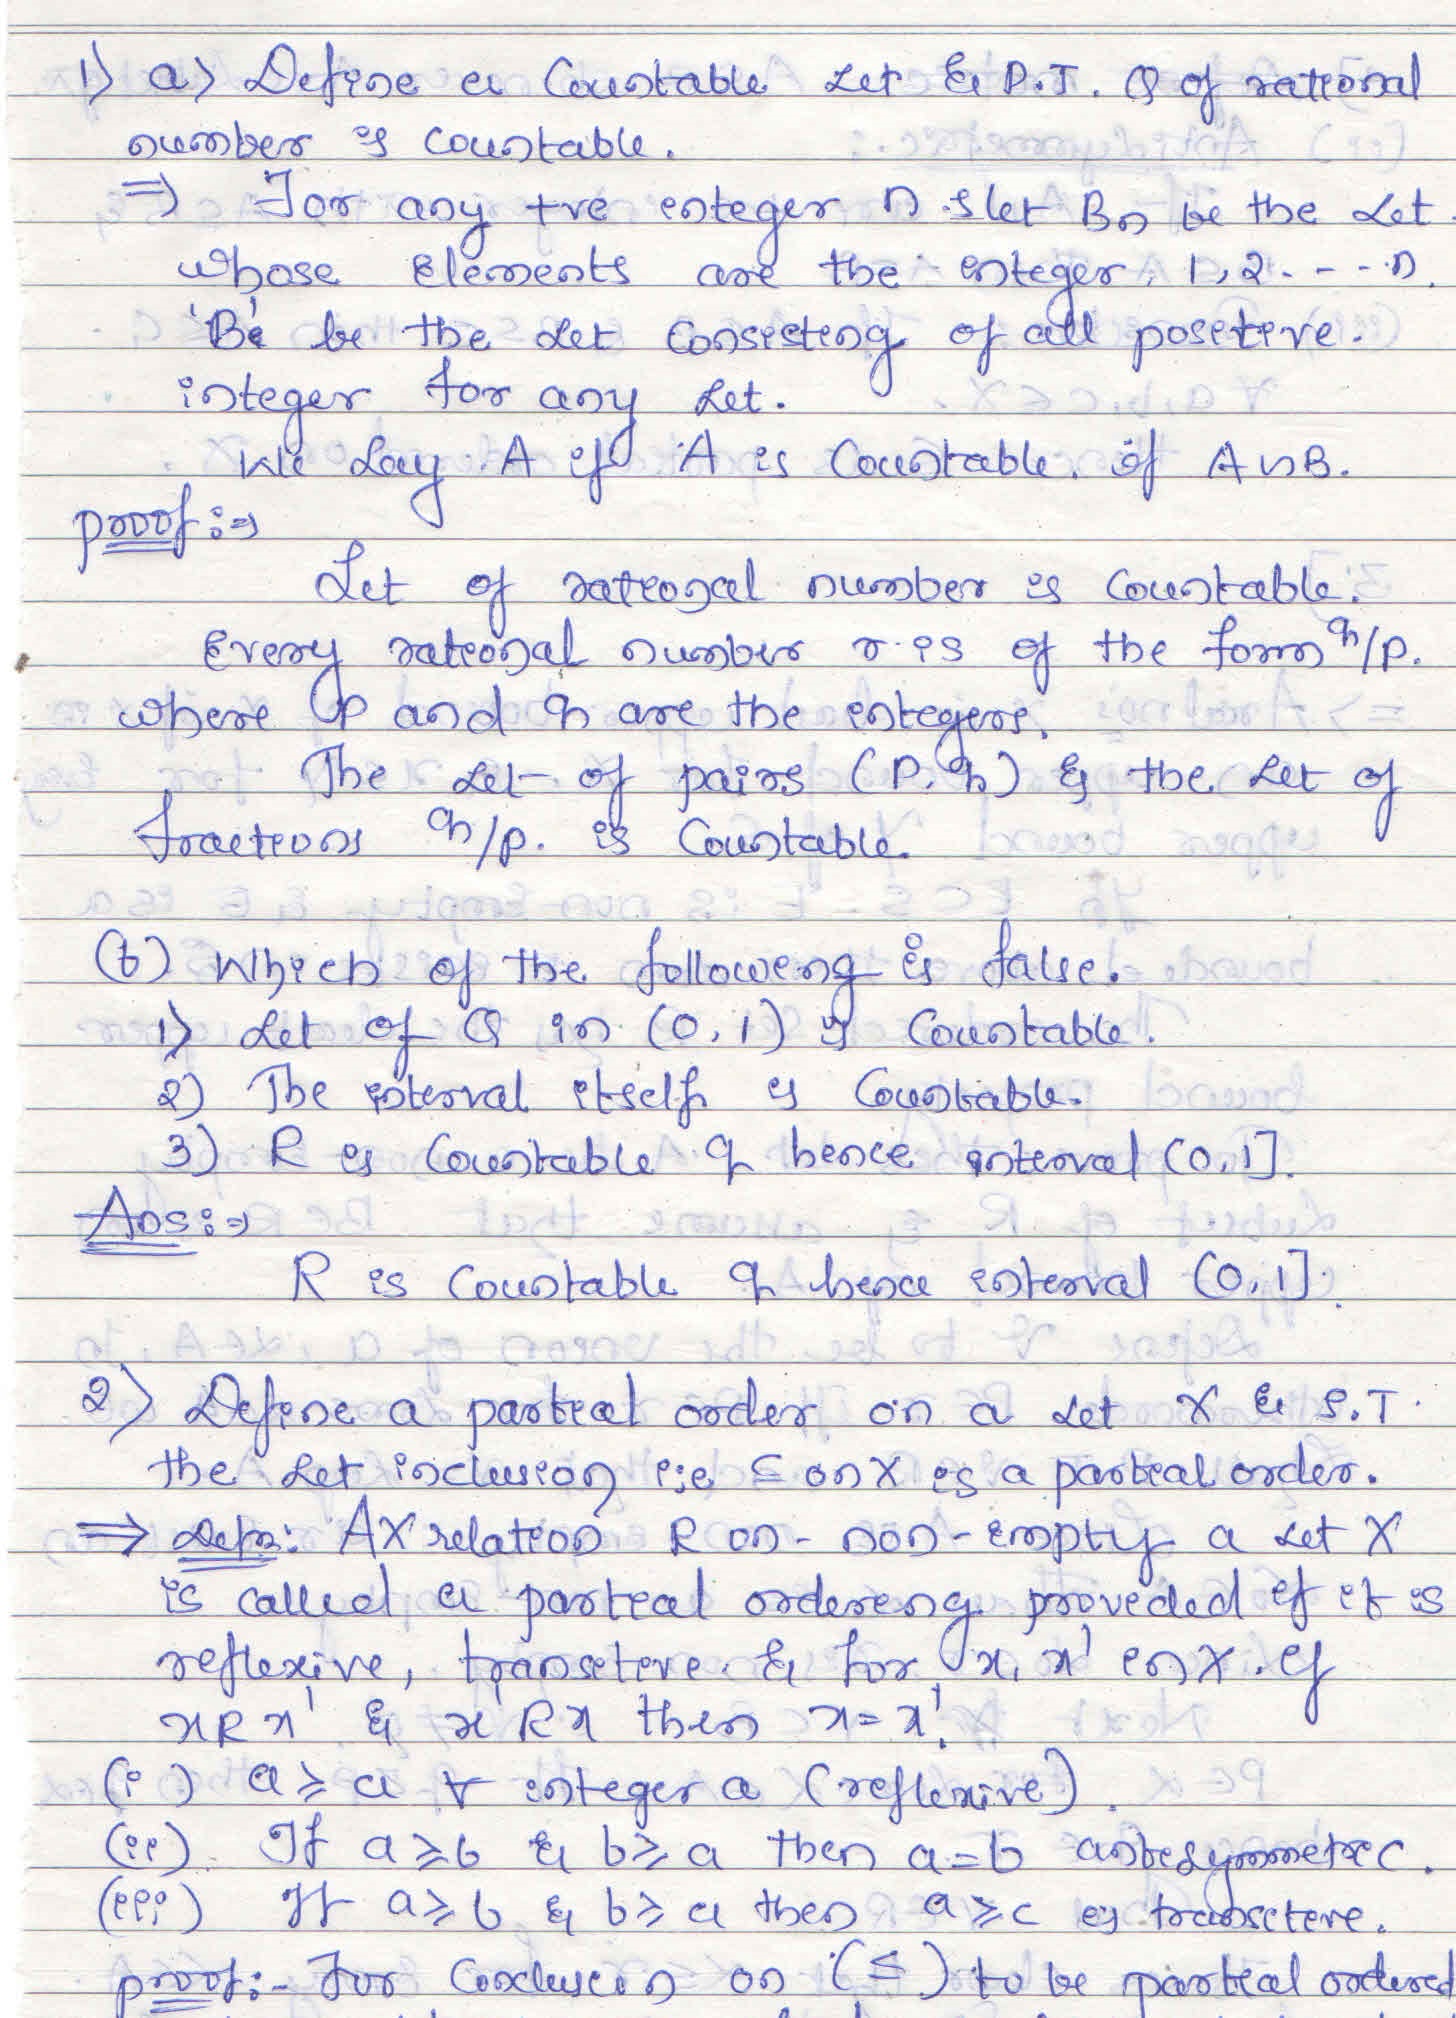 1) a) Define a Countable Set & P.T. Q of rational
number is countable.
=> For any +ve integer n let Bn be the Set
whose Elements are the integer, 1, 2 - - - n.
'B' be the set consisting of all positive.
integer for any set.
We Say A if A is Countable. if A ∽ B.
proof :⇒
Set of rational number is countable.
Every rational number r is of the form q/p.
where p and q are the integers.
The Set of pairs (P, q) & the Set of
fractions q/p. is Countable.
(b) Which of the following is false.
1) Set of Q in (0, 1) is Countable.
2) The interval itself is Countable.
3) R is Countable & hence interval (0, 1].
Ans :⇒
R is Countable & hence interval (0, 1].
2) Define a partial order on a set X & S.T.
the Set inclusion i;e ⊆ on X is a partial order.
⇒ Defn: A relation R on - non-empty a set X
is called a partial ordering provided if it is
reflexive, transitive & for x, x' in X. if
xRx' & x'Rx then x = x'.
(i) a ≥ a ∀ integer a (reflexive).
(ii) If a ≥ b & b ≥ a then a = b antisymmetric.
(iii) If a ≥ b & b ≥ a then a ≥ c is transitive.
proof :- For on (≤) to be partial ordered